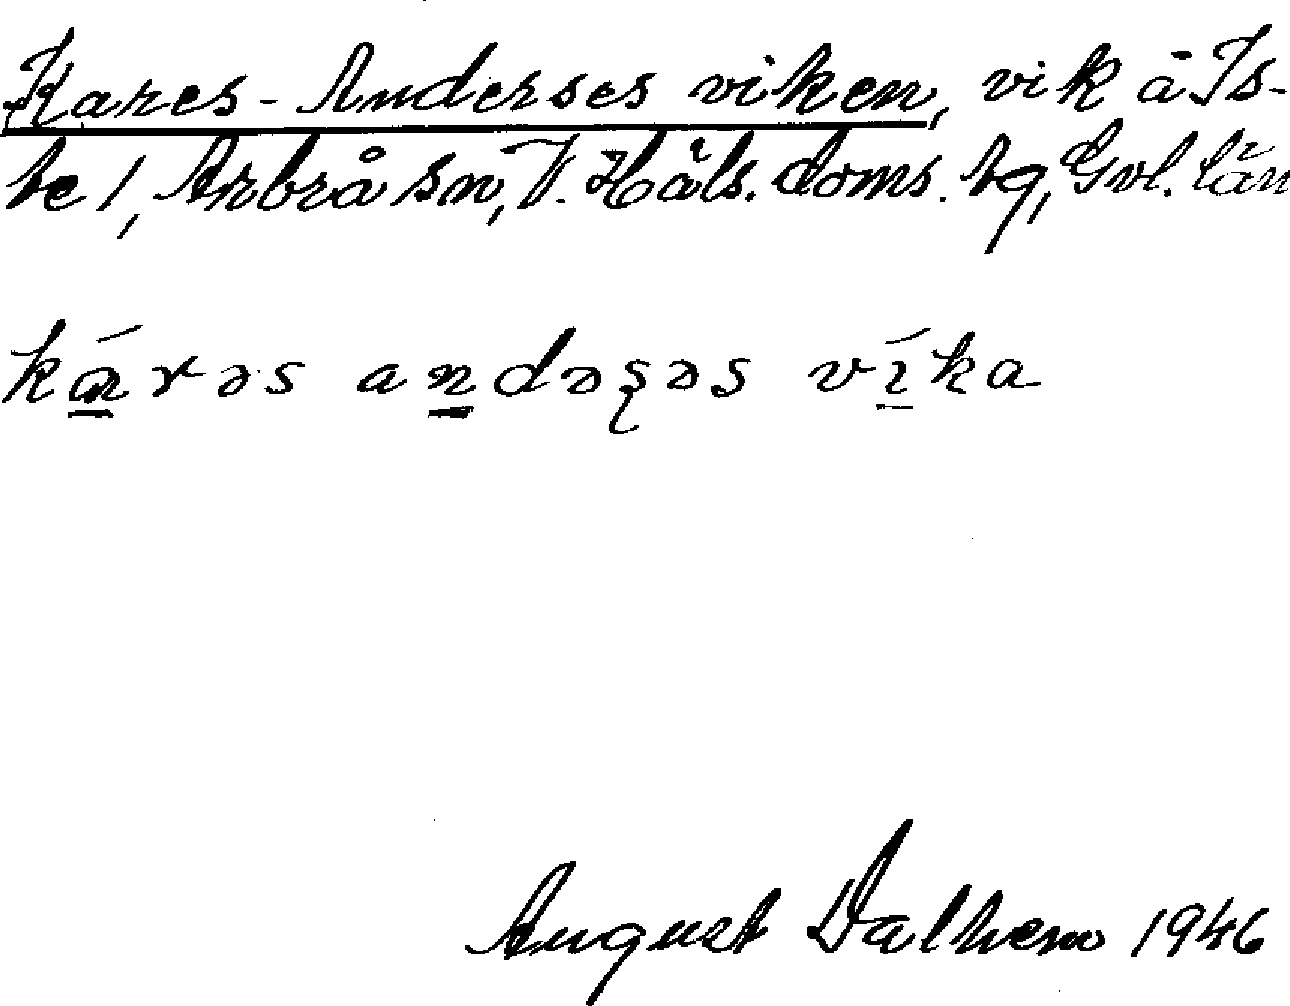 Kares-Anderses viken, vik å Is-
be 1, Arbrå sn, V. Häls. doms. hg, Gvl. län
ká̱rəs an̲dəʂəs ví̱ka
August Dalhem 1946